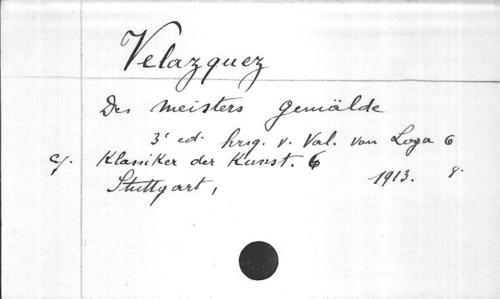 Velazquez
Des meisters gemälde
3ᵉ ed. hrsg. v. Val. von Loga 6
cf. Klassiker der Kunst. 6
Stuttgart, 1913. 8.